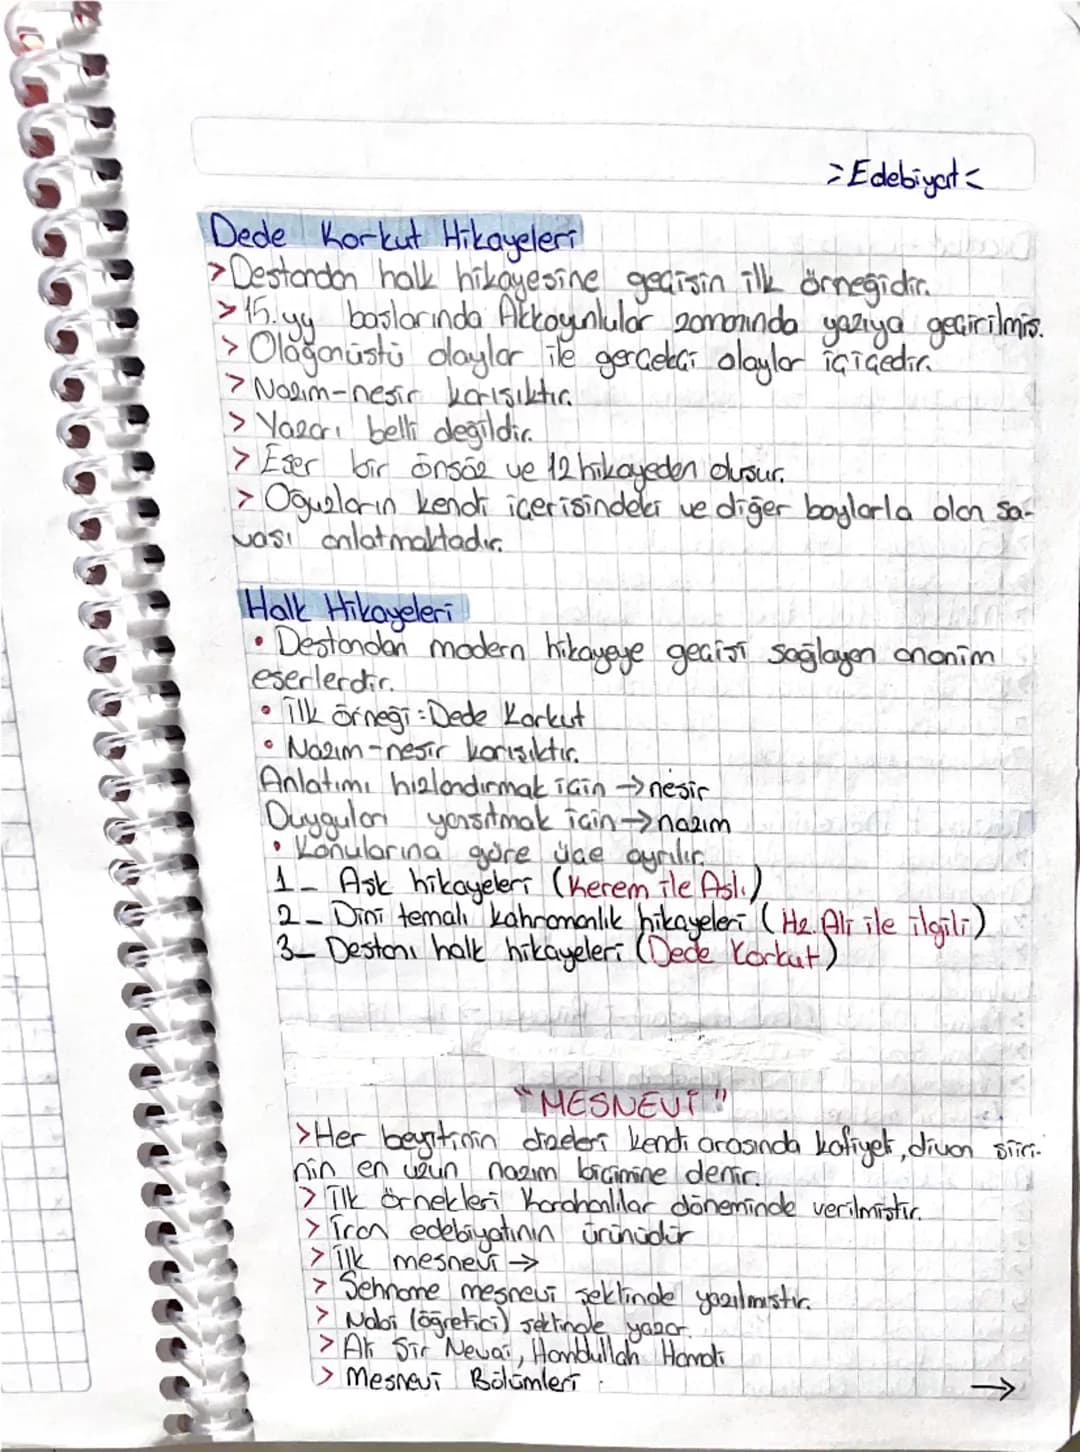 >Edebiyat<
Dede Korkut Hikayeleri
>Destandan halk hikayesine geçişin ilk örneğidir.
>15.yy başlarında Akkoyunlular zamanında yazıya geçirilmiş.
>Olağanüstü olaylar ile gerçekçi olaylar içiçedir.
>Nazım-nesir karışıktır.
>Yazarı belli değildir.
>Eser bir önsöz ve 12 hikayeden oluşur.
>Oğuzların kendi içerisindeki ve diğer boylarla olan sa-
vaşı anlatmaktadır.
Halk Hikayeleri
• Destandan modern hikayeye geçişi sağlayan anonim
eserlerdir.
• İlk örneği: Dede Korkut
• Nazım-nesir karışıktır.
Anlatımı hızlandırmak için → nesir
Duyguları yansıtmak için → nazım
• Konularına göre üçe ayrılır.
1- Aşk hikayeleri (Kerem ile Aslı)
2- Dini temalı kahramanlık hikayeleri (Hz. Ali ile ilgili)
3- Destanı halk hikayeleri (Dede Korkut)
"MESNEVİ"
>Her beyitinin dizeleri kendi arasında kafiyeli, divan şiiri-
nin en uzun nazım biçimine denir.
>İlk örnekleri Karahanlılar döneminde verilmiştir.
>İran edebiyatının ürünüdür
>İlk mesnevi →
>Şehname mesnevi şeklinde yazılmıştır.
>Nabi (öğretici) şeklinde yazar.
>Ali Şir Nevai, Hamdullah Hamdi
>Mesnevi Bölümleri
→